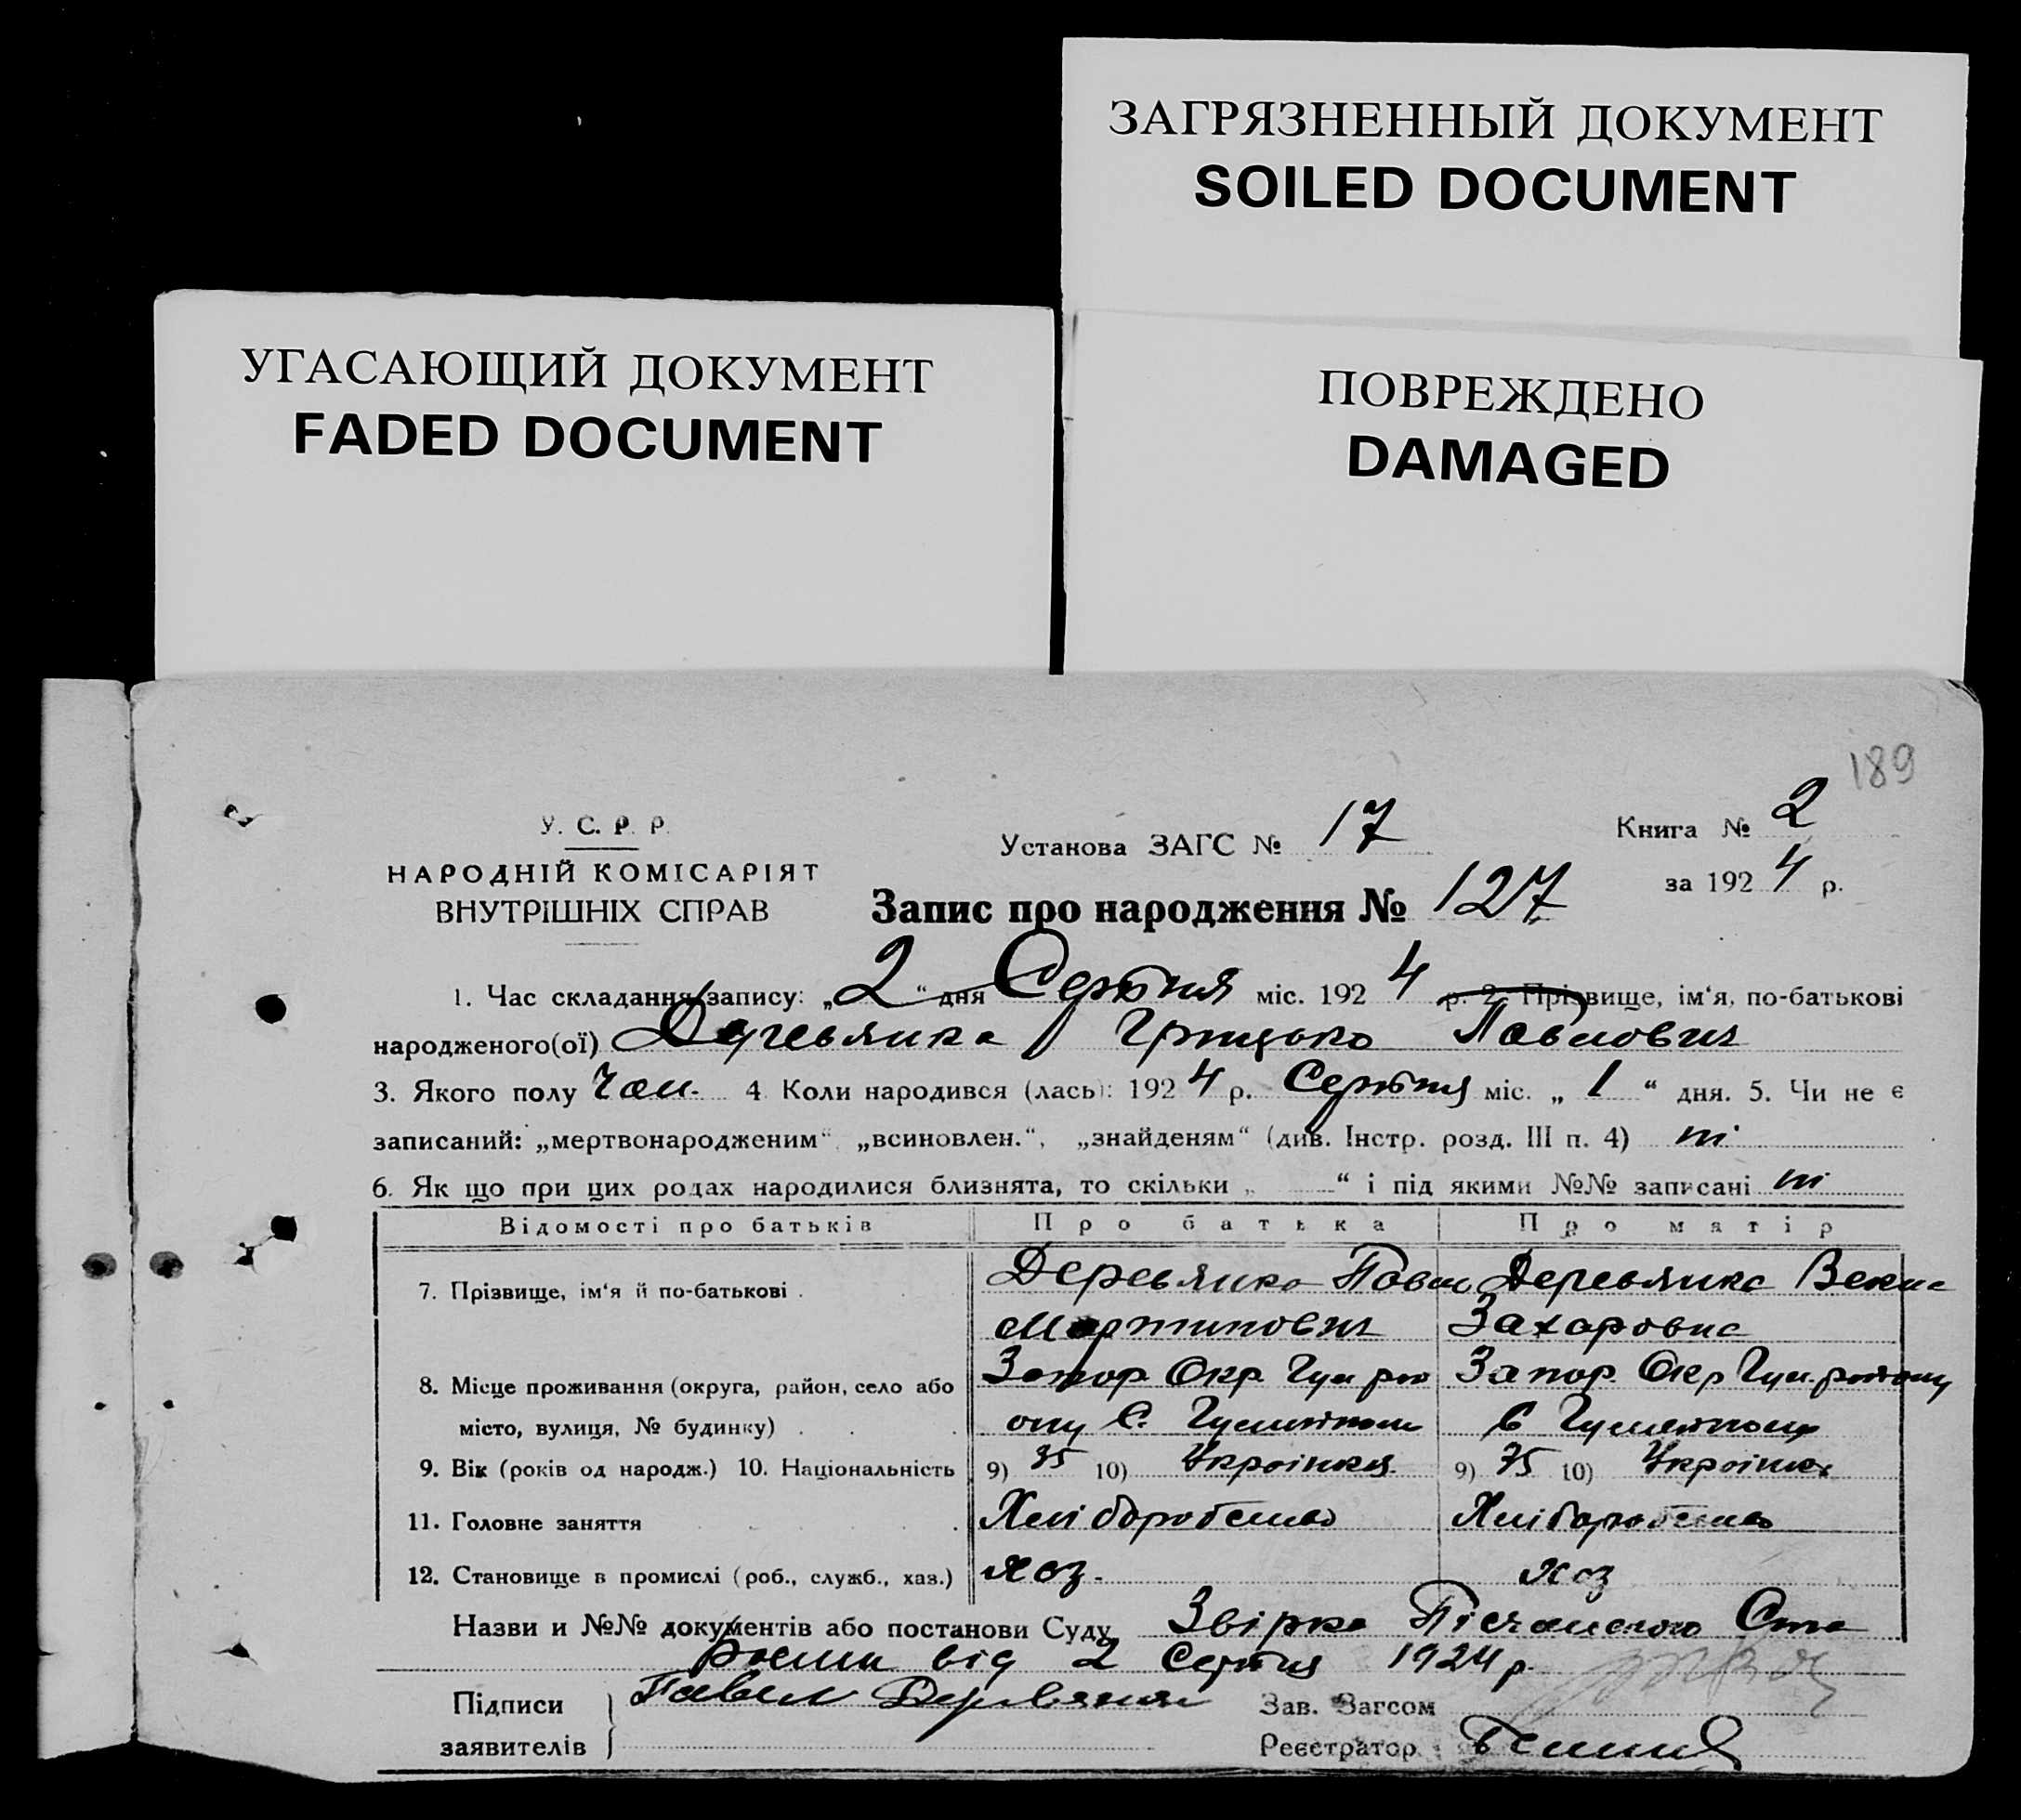 ЗАГРЯЗНЕННЫЙ ДОКУМЕНТ
SOILED DOCUMENT
УГАСАЮЩИЙ ДОКУМЕНТ
FADED DOCUMENT
ПОВРЕЖДЕНО
DAMAGED
189
У. С. Р. Р.
НАРОДНІЙ КОМІСАРІЯТ
ВНУТРІШНІХ СПРАВ
Установа ЗАГС № 17
Книга № 2
за 1924 р.
Запис про народження № 127
1. Час складання запису: „2“ дня Серпня міс. 1924 р. 2. Прізвище, ім‘я, по-батькові
народженого(ої) Деревянка Грицько Павлович
3. Якого полу Чол. 4. Коли народився (лась): 1924 р. Серпня міс. „1“ дня. 5. Чи не є
записаний: „мертвонародженим“, „всиновлен.“, „знайденям“ (див. Інстр. розд. III п. 4) ні
6. Як що при цих родах народилися близнята, то скільки „ “ і під якими №№ записані ні
Відомості про батьків Про батька Про матір
7. Прізвище, ім‘я й по-батькові Деревянко Павло Деревянка
Мартинович Захаровна
8. Місце проживання (округа, район, село або Запор Окр Запор. Окр
місто, вулиця, № будинку) ону С.
9. Вік (років од народж.) 10. Національність 9) 35 10) 9) 35 10)
11. Головне заняття Хліборобство Хліборобство
12. Становище в промислі (роб., служб., хаз.) хоз. хоз
Назви и №№ документів або постанови Суду Звірка
від 2 Серпня 1924 р.
Підписи Павел Деревянка Зав. Загсом
заявителів Реєстратор